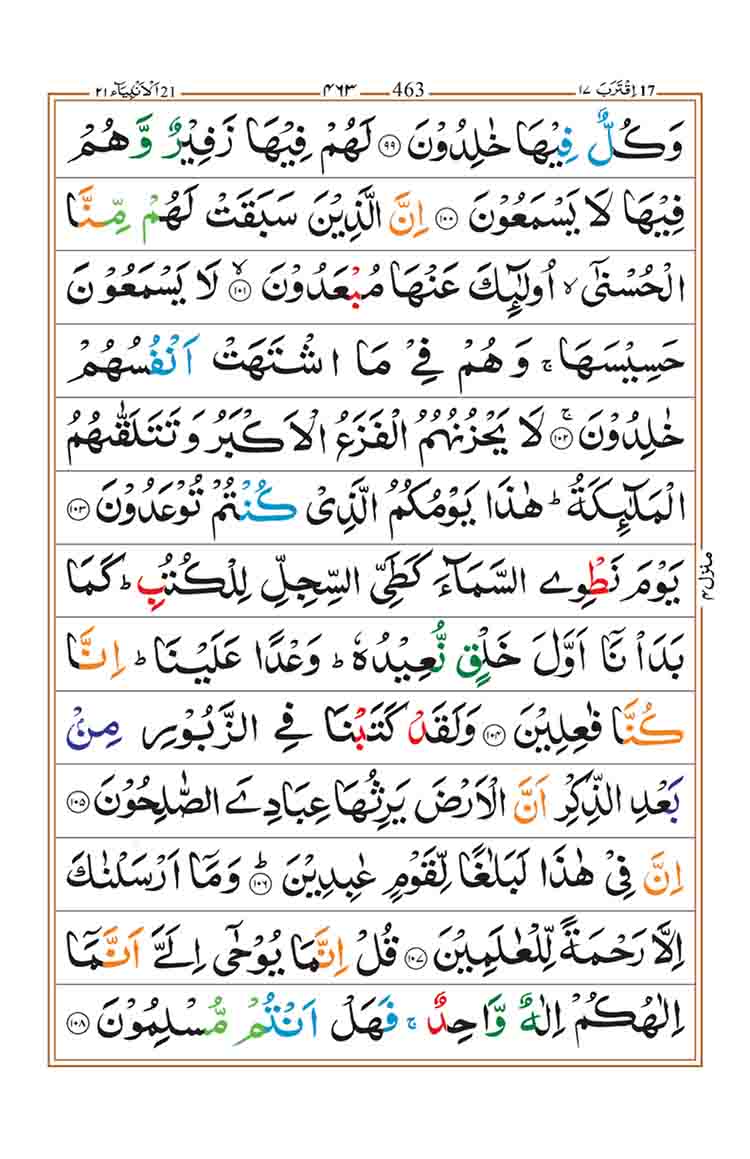 17 اِقْتَرَبَ ١٧ 463 ۴۶۳ 21 اَلْاَنْۢبِيَآء ٢١
وَكُلٌّ فِيْهَا خٰلِدُوْنَ ۝٩٩ لَهُمْ فِيْهَا زَفِيْرٌ وَّهُمْ
فِيْهَا لَا يَسْمَعُوْنَ ۝١٠٠ اِنَّ الَّذِيْنَ سَبَقَتْ لَهُمْ مِّنَّا
الْحُسْنٰٓى ۙ اُولٰٓئِكَ عَنْهَا مُبْعَدُوْنَ ۝١٠١ۙ لَا يَسْمَعُوْنَ
حَسِيْسَهَا ۚ وَهُمْ فِيْ مَا اشْتَهَتْ اَنْفُسُهُمْ
خٰلِدُوْنَ ۝١٠٢ۚ لَا يَحْزُنُهُمُ الْفَزَعُ الْاَكْبَرُ وَتَتَلَقّٰىهُمُ
الْمَلٰٓئِكَةُ ؕ هٰذَا يَوْمُكُمُ الَّذِيْ كُنْتُمْ تُوْعَدُوْنَ ۝١٠٣
يَوْمَ نَطْوِي السَّمَآءَ كَطَيِّ السِّجِلِّ لِلْكُتُبِ ؕ كَمَا
بَدَاْنَاۤ اَوَّلَ خَلْقٍ نُّعِيْدُهٗ ؕ وَعْدًا عَلَيْنَا ؕ اِنَّا
كُنَّا فٰعِلِيْنَ ۝١٠٤ وَلَقَدْ كَتَبْنَا فِي الزَّبُوْرِ مِنْۢ
بَعْدِ الذِّكْرِ اَنَّ الْاَرْضَ يَرِثُهَا عِبَادِيَ الصّٰلِحُوْنَ ۝١٠٥
اِنَّ فِيْ هٰذَا لَبَلٰغًا لِّقَوْمٍ عٰبِدِيْنَ ۝١٠٦ؕ وَمَاۤ اَرْسَلْنٰكَ
اِلَّا رَحْمَةً لِّلْعٰلَمِيْنَ ۝١٠٧ قُلْ اِنَّمَا يُوْحٰۤى اِلَيَّ اَنَّمَاۤ
اِلٰهُكُمْ اِلٰهٌ وَّاحِدٌ ۚ فَهَلْ اَنْتُمْ مُّسْلِمُوْنَ ۝١٠٨
منزل ۴